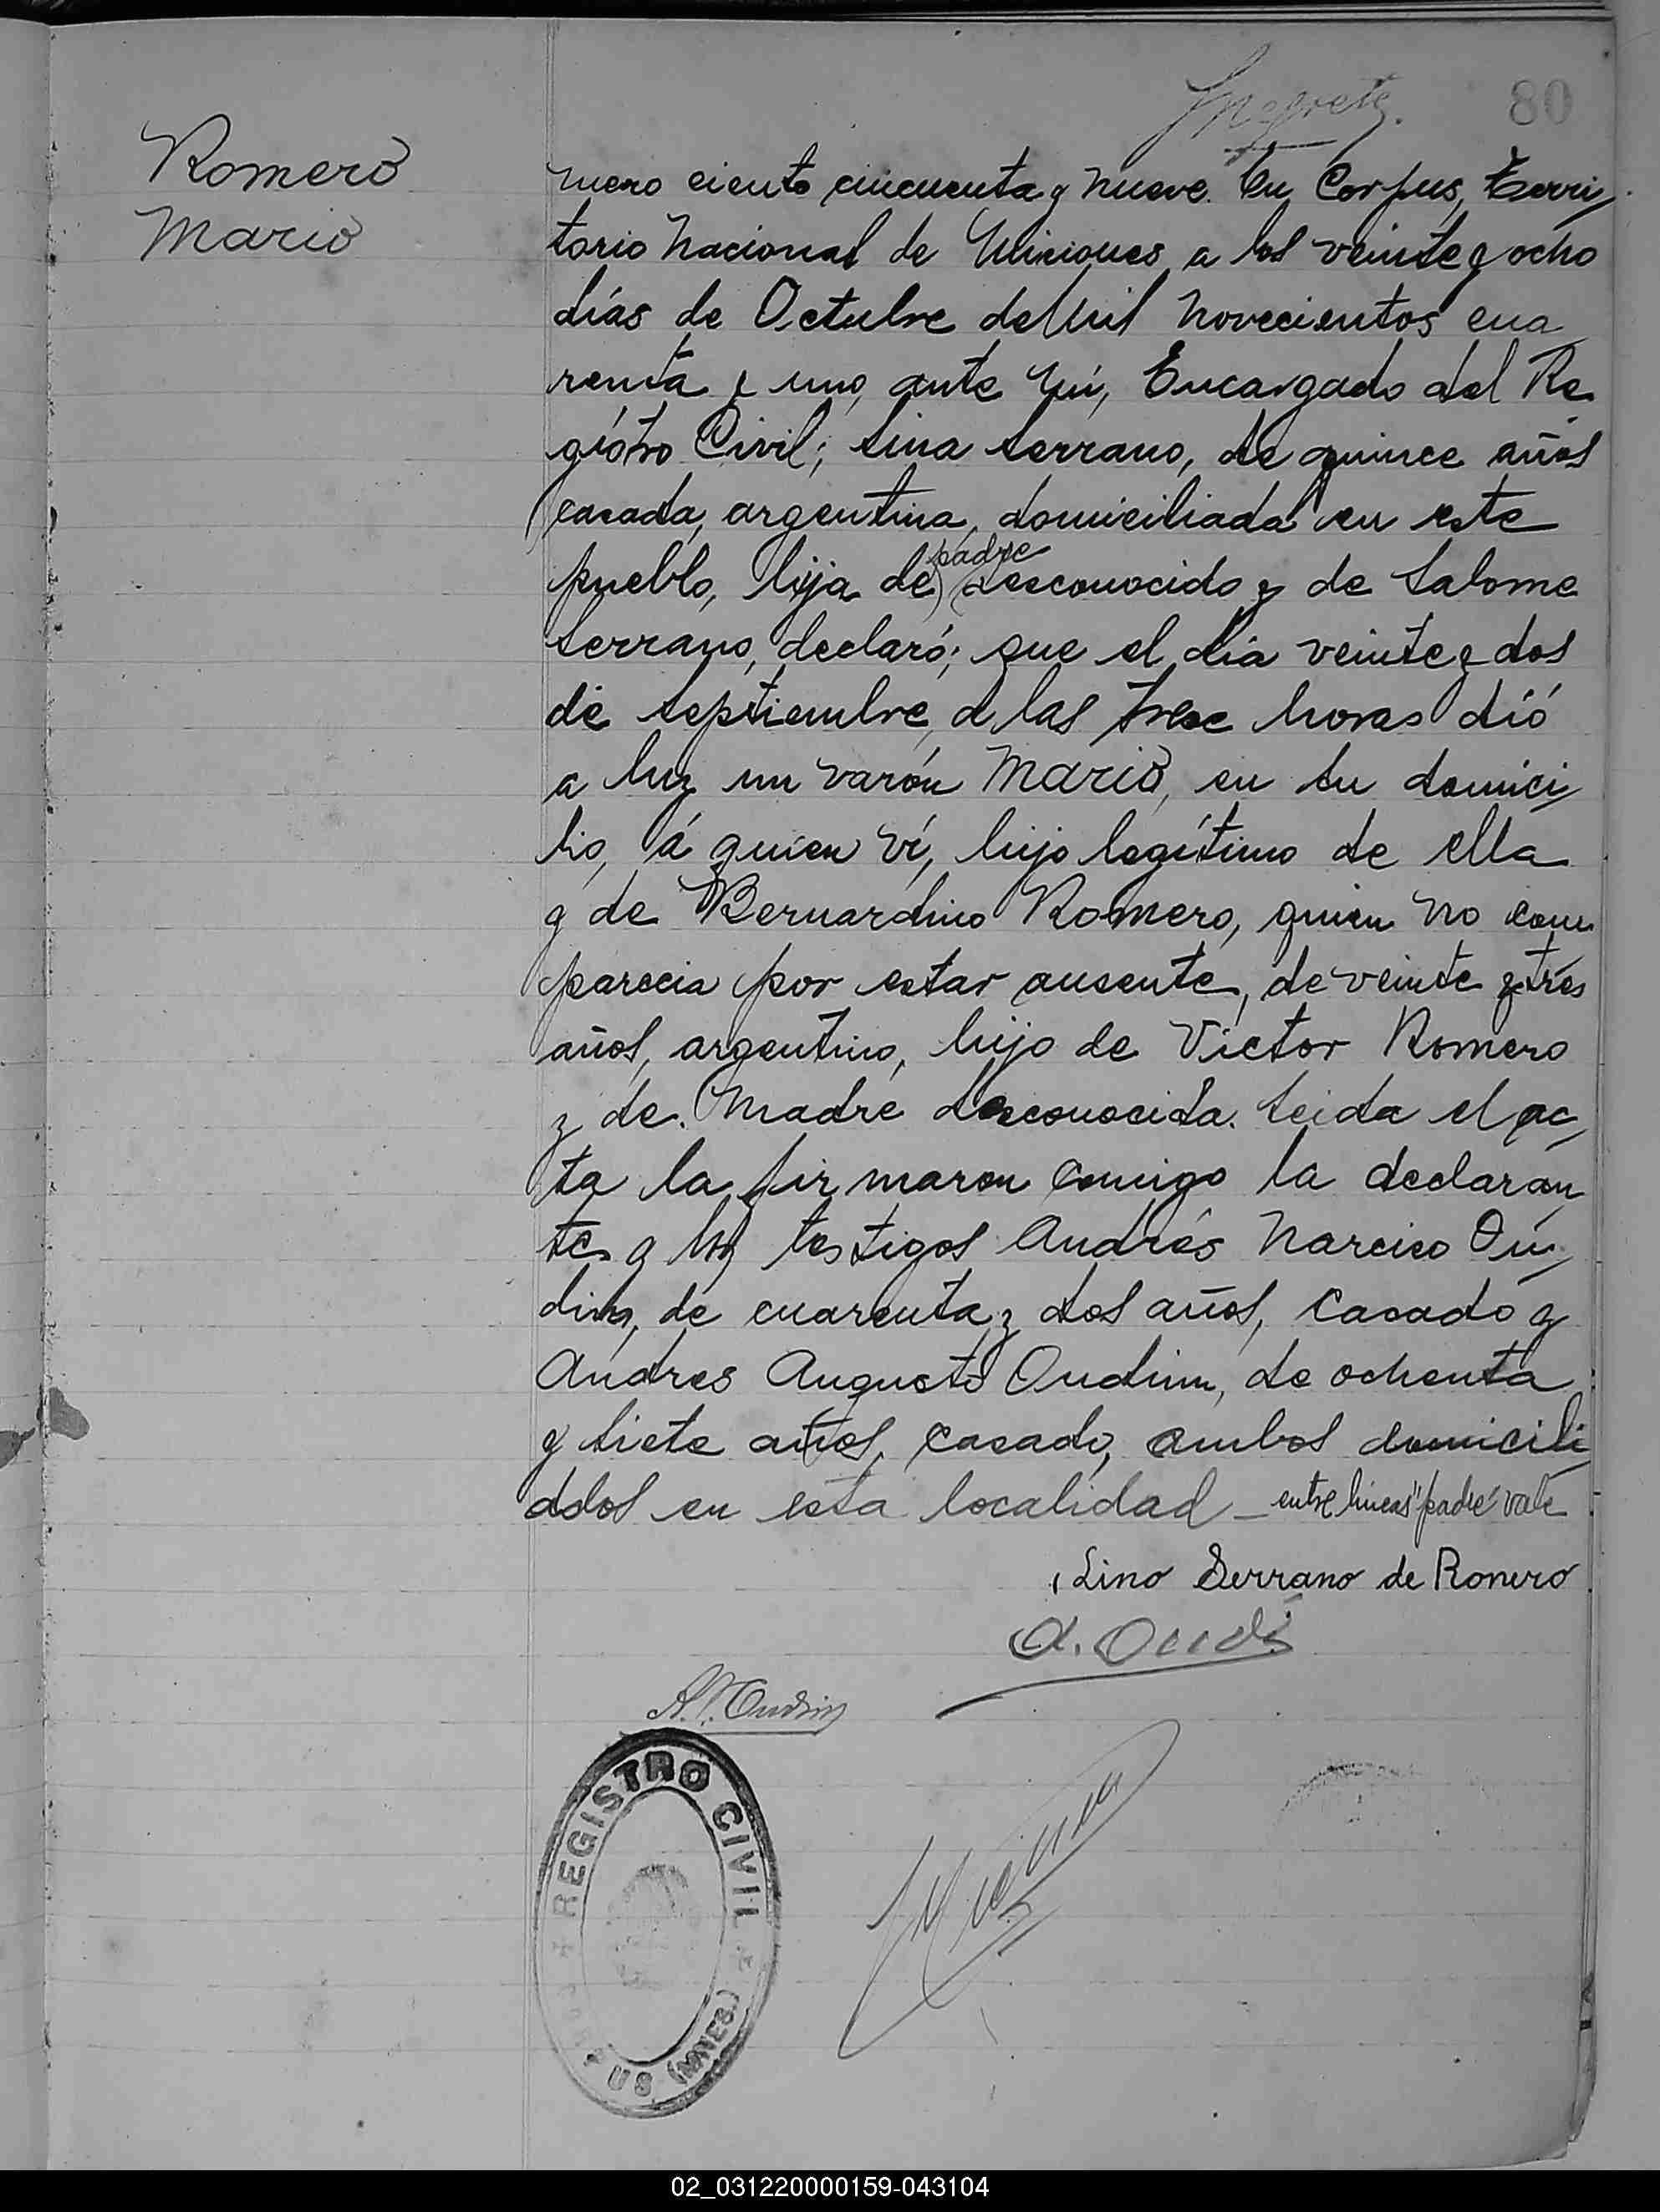 80
Romero
Mario
mero ciento cincuenta y nueve. En Corpus, Terri
torio Nacional de Misiones a los veinte y ocho
días de Octubre de Mil Novecientos cua
renta y uno, ante mí, Encargado del Re
gistro Civil; Lina Serrano, de quince años
casada, argentina, domiciliada en este
padre
pueblo, hija de desconocido y de Salome
Serrano, declaró; que el día veinte y dos
de septiembre, a las trece horas dió
a luz un varón Mario, en su domici
lio, á quien ví, hijo legítimo de ella
y de Bernardino Romero, quien no com
parecia por estar ausente, de veinte y tres
años, argentino, hijo de Victor Romero
y de Madre desconocida. Leida el ac
ta la firmaron comigo la declaran
te y los testigos Andrés Narciso Ou
din, de cuarenta y dos años, casado y
Andres Augusto Oudin, de ochenta
y siete años, casado, ambos domicili
ados en esta localidad - entre lineas "padre" vale
Lino Serrano de Romero
A. Oudi
A. N. Oudin
REGISTRO CIVIL
CORPUS (MNES.)
02_031220000159-043104